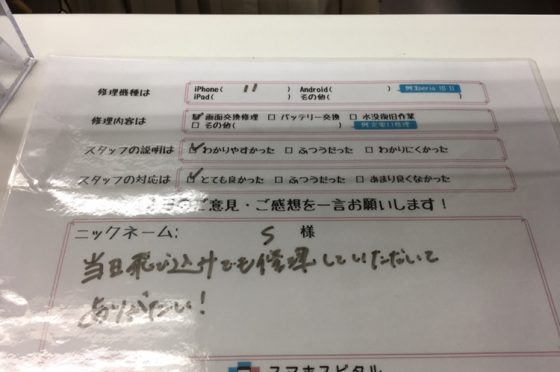 修理機種は iPhone( 11 ) Android( ) 例:Xperia 10 II
iPad( ) その他( )
修理内容は ☑ 画面交換修理 □ バッテリー交換 □ 水没復旧作業
□ その他( )
スタッフの説明は ☑ わかりやすかった □ ふつうだった □ わかりにくかった
スタッフの対応は ☑ とても良かった □ ふつうだった □ あまり良くなかった
ご意見・ご感想を一言お願いします!
ニックネーム: S 様
当日飛び込みでも修理していただいて
ありがたい!
スマホスピタル